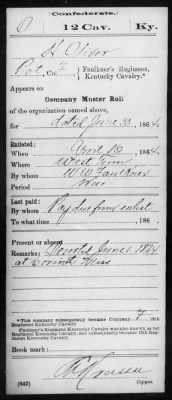 Confederate.
O 12 Cav. Ky.
H Oliver
Pvt, Co. F, Faulkner's Regiment,
Kentucky Cavalry.*
Appears on
Company Muster Roll
of the organization named above,
for dated June 30, 1864.
Enlisted:
When April 10, 1864
Where West Tenn
By whom W W Faulkner
Period War
Last paid:
By whom Pay due from enlist
To what time , 186 .
Present or absent
Remarks: June 1 1864
at Corinth Miss
*This company subsequently became Company F, 12th
Regiment Kentucky Cavalry.
Faulkner's Regiment Kentucky Cavalry was also known as 1st
Regiment Kentucky Cavalry, and subsequently became 12th Regiment Kentucky Cavalry.
Book mark:
(642) Copyist.